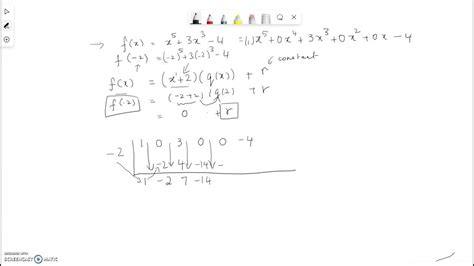 → f(x) = x⁵ + 3x³ - 4 = (1)x⁵ + 0x⁴ + 3x³ + 0x² + 0x - 4
f(-2) = (-2)⁵ + 3(-2)³ - 4
f(x) = (x+2)(q(x)) + r constant
f(-2) = (-2+2)(q(2)) + r
= 0 + r
-2 | 1 0 3 0 0 -4
-2 4 -14 -
1 -2 7 -14
RECORDED WITH
SCREENCAST-O-MATIC